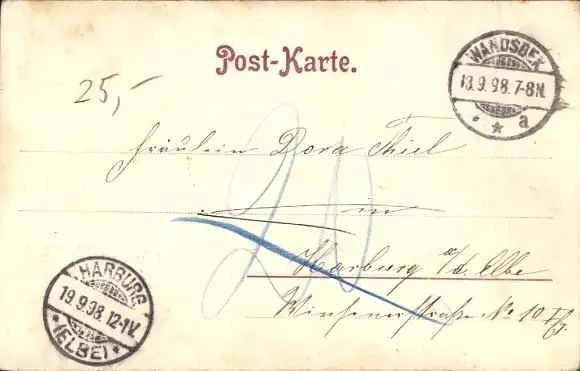 Post-Karte.
WANDSBEK
18.9.98.7-8N.
* * a
25,-
Fräulein Dora Thiel
in
Harburg a/d. Elbe
Winsenerstraße No 10
20
HARBURG
19.9.98.12-1V.
*(ELBE)*